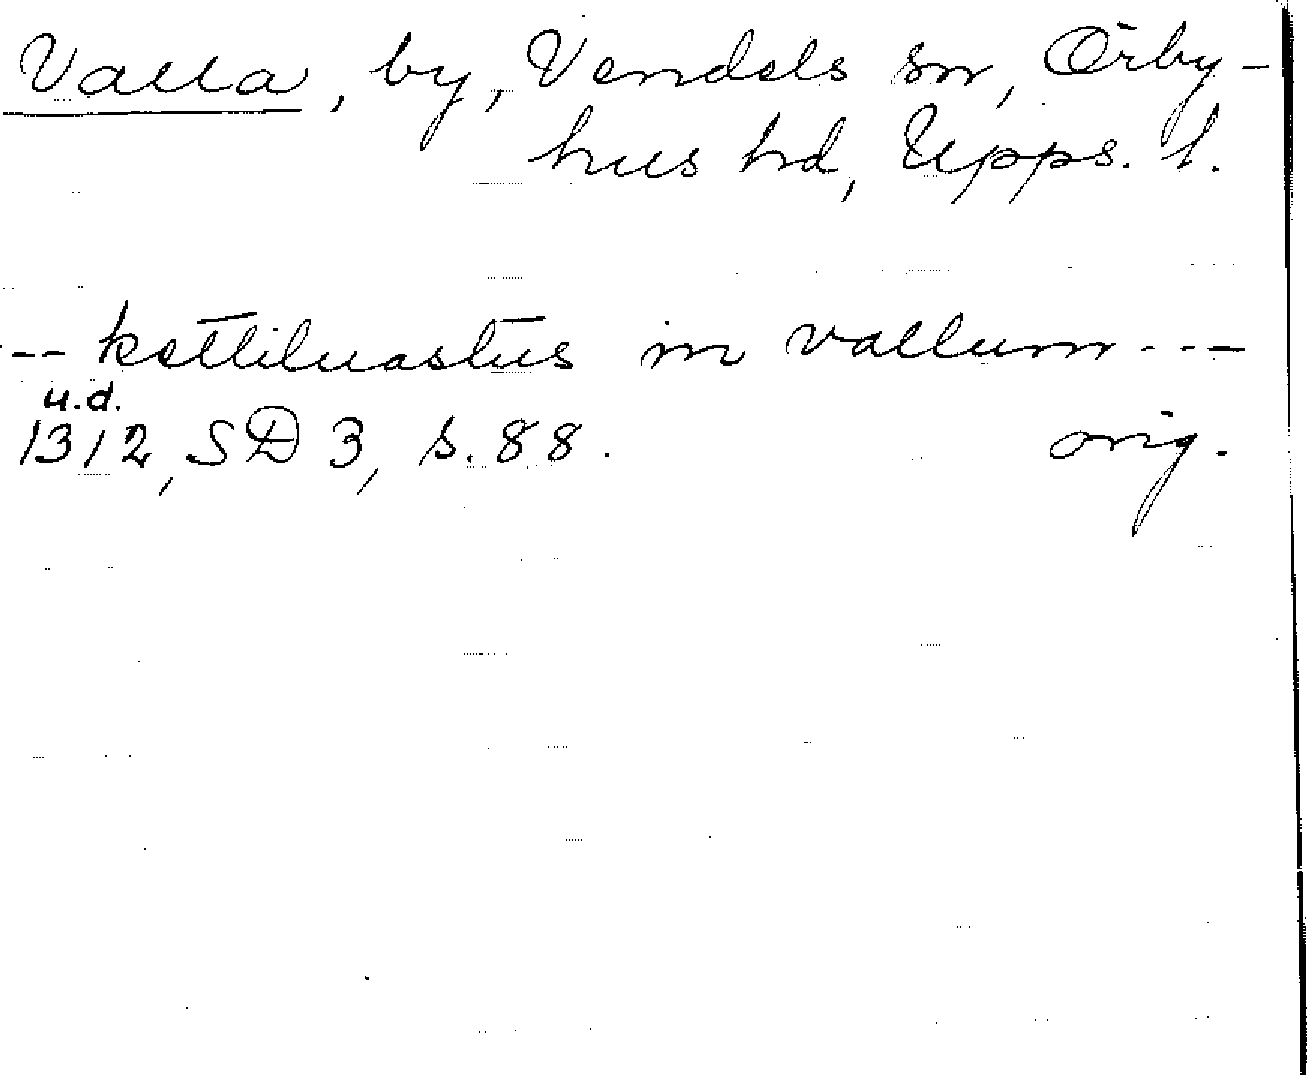 Valla, by, Vendels sn, Örby-
hus hd, Upps. l.
--- kettiluastus in vallum ---
u.d.
1312, SD 3, s. 88. orig.